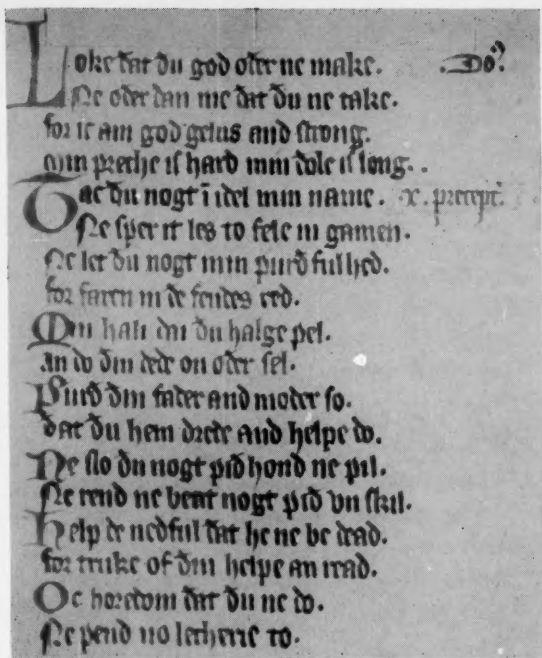 Loke ðat ðu god oðer ne make.
Ne oðer ðan me ðat ðu ne take.
for ic am god gelus and strong.
Min ƿreche is hard min ðole is long..
Tac ðu nogt ī idel min name. .x. precept'
Ne sƿer it les to fele in gamen.
Ne let ðu nogt min ƿurð ful hed.
for faren in ðe fendes red.
Min hali dai ðu halge ƿel.
an do ðin dede on oðer sel.
ƿurð ðin fader and moder so.
ðat ðu hem drede and helpe do.
Ne slo ðu nogt ƿið hond ne ƿil.
Ne rend ne beat nogt ƿið vn skil.
help ðe nedful ðat he ne be dead.
for truke of ðin helpe an read.
Oc horedom ðat ðu ne do.
Ne ƿend no lecherie to.